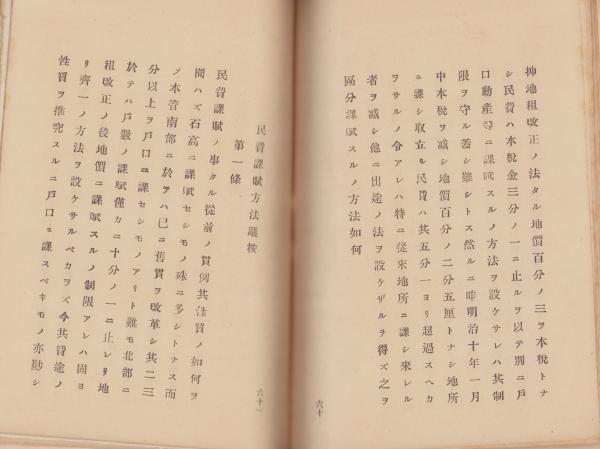 抑地租改正ノ法タル地價百分ノ三ヲ本税トナ
シ民費ハ本税金三分ノ一ニ止ルヲ以テ別ニ戸
口動產等ニ課賦スルノ方法ヲ設ケサレハ其制
限ヲ守ル葢シ難シトス然ルニ昨明治十年一月
中本税ヲ减シ地價百分ノ二分五厘トナシ地所
ニ課シ取立ル民費ハ其五分一ヨリ超過スヘカ
ヲサルノ令アレハ特ニ従來地所ニ課シ來レル
者ヲ减シ他ニ出途ノ法ヲ設ケザルヲ得ズ之ヲ
區分課賦スルノ方法如何
六十
民費課賦方法議按
第一條
民費課賦ノ事タル從前ノ貫例其性質ノ如何ヲ
間ハズ石高ニ課賦セシモノ殊ニ多シトナス而
ソ本管南部ニ於テハ已ニ舊貫ヲ改革シ其二三
分以上ヲ戸口ニ課セシモノアリト雖モ北部ニ
於テハ戸數ノ課賦僅カニ十分ノ一ニ止レリ地
租改正ノ後地價ニ課賦スルノ制限アレハ固ヨ
リ齊一ノ方法ヲ設ケサルベカヲズ今其費途ノ
性質ヲ推究スルニ戸口ニ課スベキモノ亦尠シ
六十一